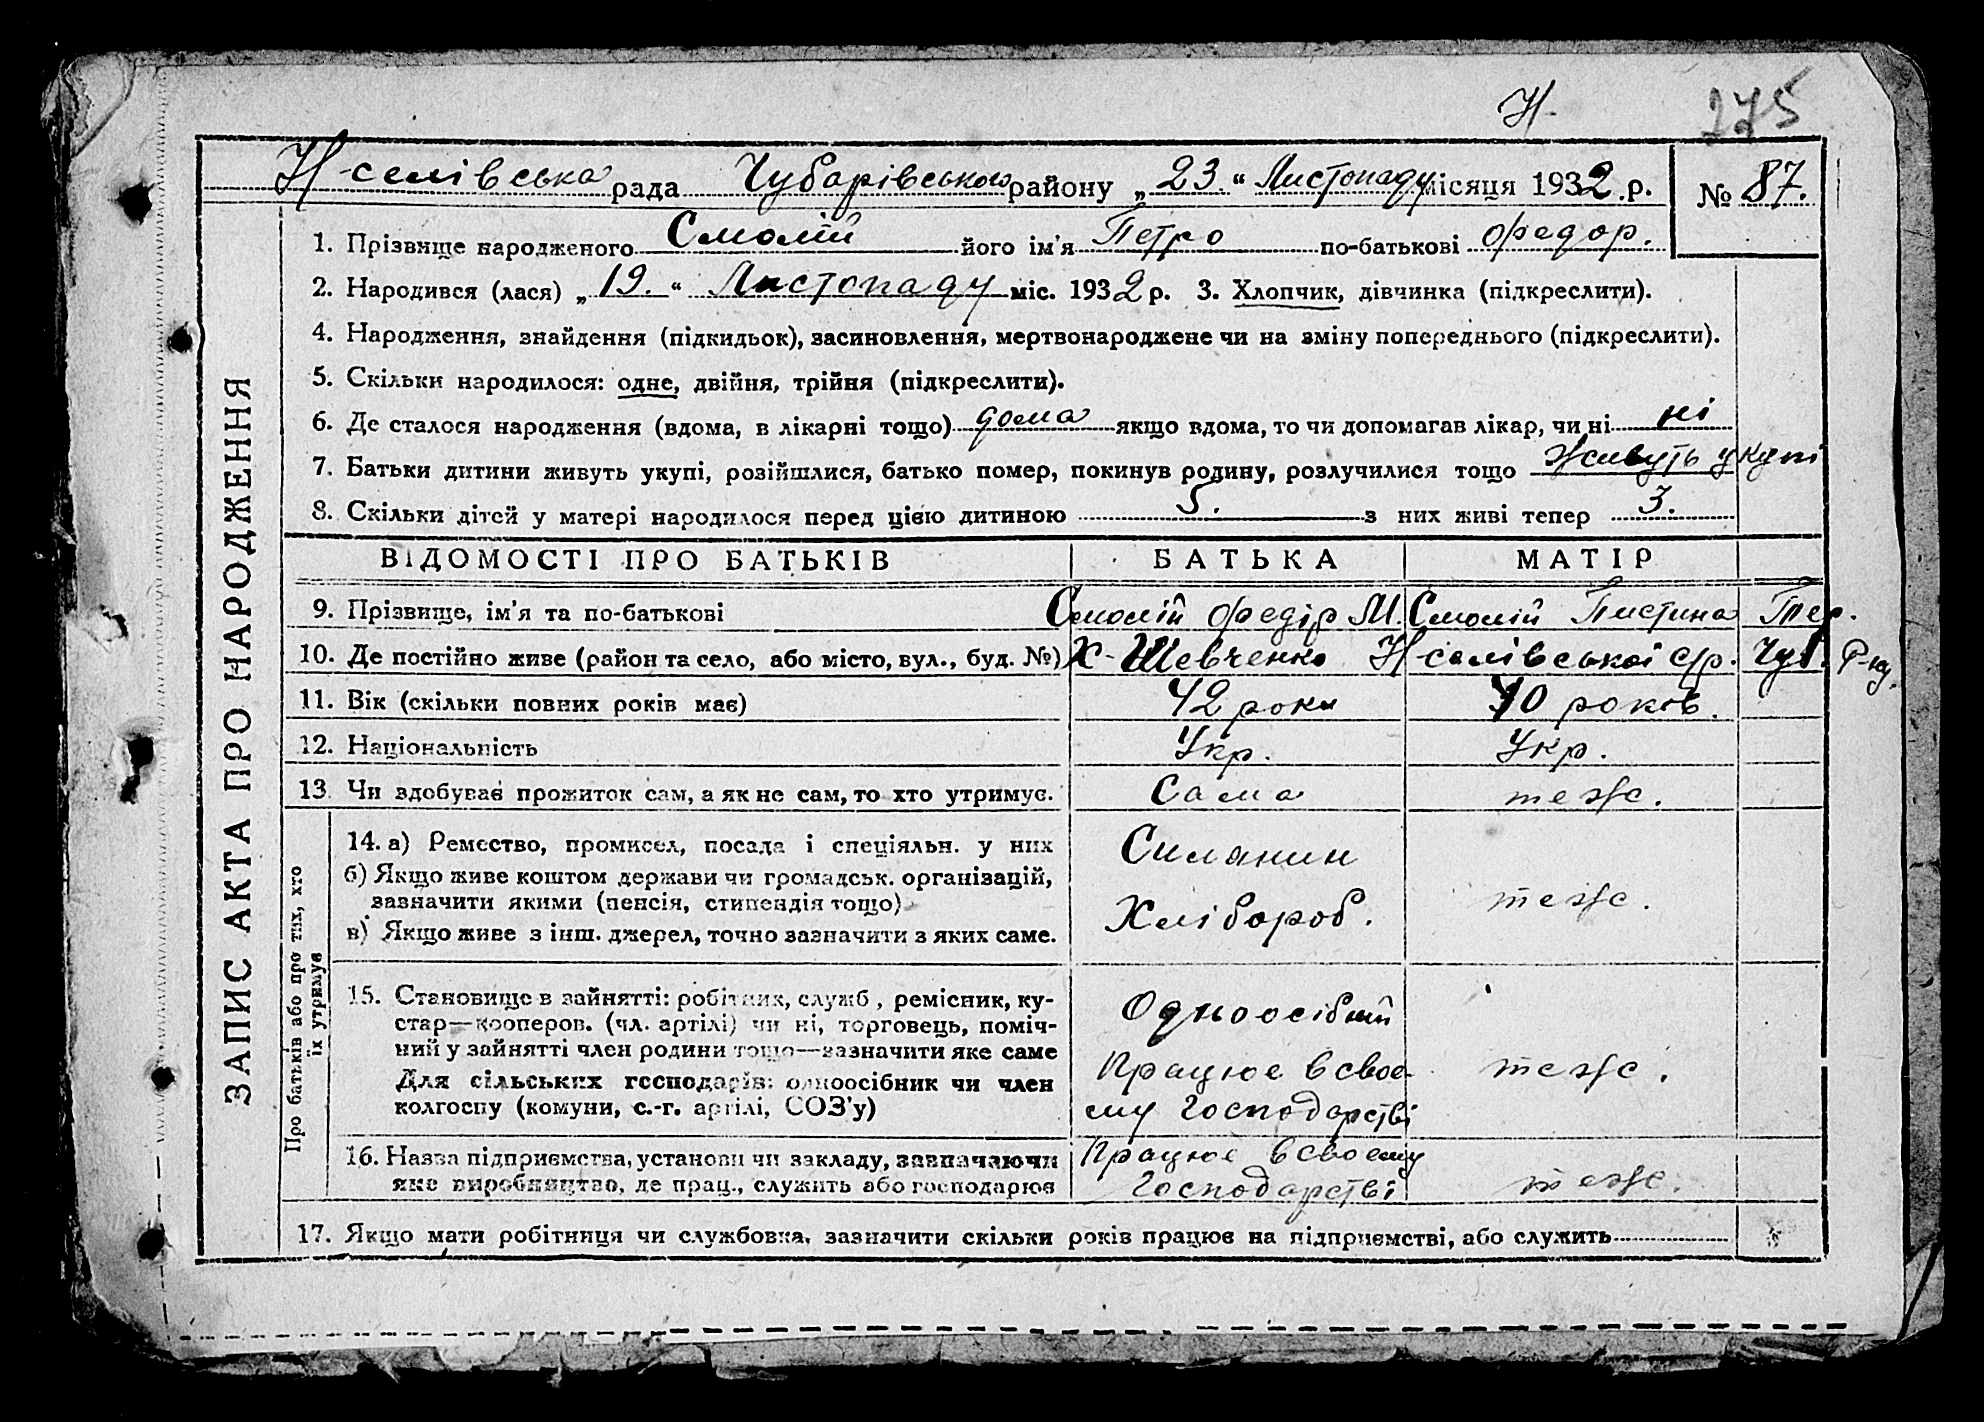 Н 275
Н-селівська рада Чубарівського району „23“ Листопаду місяця 1932 р. № 87.
1. Прізвище народженого Смолій його ім'я Петро по-батькові Федор.
2. Народився (лася) „19.“ Листопаду міс. 1932 р. 3. Хлопчик, дівчинка (підкреслити).
4. Народження, знайдення (підкидьок), засиновлення, мертвонароджене чи на зміну попереднього (підкреслити).
5. Скільки народилося: одне, двійня, трійня (підкреслити).
6. Де сталося народження (вдома, в лікарні тощо) дома якщо вдома, то чи допомагав лікар, чи ні ні
7. Батьки дитини живуть укупі, розійшлися, батько помер, покинув родину, розлучилися тощо Живуть укупі
8. Скільки дітей у матері народилося перед цією дитиною 5. з них живі тепер 3.
ЗАПИС АКТА ПРО НАРОДЖЕННЯ
ВІДОМОСТІ ПРО БАТЬКІВ БАТЬКА МАТІР
9. Прізвище, ім'я та по-батькові Смолій Федір М. Смолій Пистина Тер.
10. Де постійно живе (район та село, або місто, вул., буд. №) Х-Шевченко Н-селівської с/р. Чуб. Р-ну.
11. Вік (скільки повних років має) 42 роки 40 років.
12. Національність Укр. Укр.
13. Чи здобуває прожиток сам, а як не сам, то хто утримує. Сама теж.
Про батьків або про тих, хто
їх утримує
14. а) Ремество, промисел, посада і спеціяльн. у них
б) Якщо живе коштом держави чи громадськ. організацій,
зазначити якими (пенсія, стипендія тощо)
в) Якщо живе з інш. джерел, точно зазначити з яких саме.
Силянин
Хлібороб.
теж.
15. Становище в зайнятті: робітник, служб, ремісник, ку-
стар—кооперов. (чл. артілі) чи ні, торговець, поміч-
ний у зайнятті член родини тощо—зазначити яке саме
Для сільських господарів: одноосібник чи член
колгоспу (комуни, с.-г. артілі, СОЗ'у)
Одноосібний
Працює в своє-
му господарстві
теж.
16. Назва підприємства, установи чи закладу, зазначаючи
яке виробництво, де прац., служить або господарює
Працює в своєму
Господарстві
теж.
17. Якщо мати робітниця чи службовка, зазначити скільки років працює на підприємстві, або служить